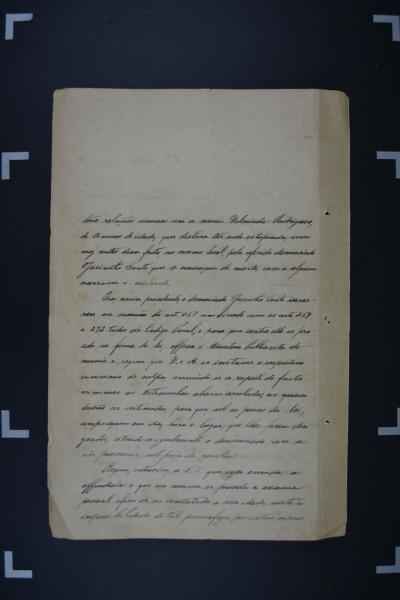 teve relações sexuaes com a menor Delminda Rodrigues,
de annos de idade, que declara ter sido estuprada, um
mez antes desse facto, no mesmo local, pelo referido denunciado
Jacintho Couto que a ameaçou de morte caso a alguem
narrasse o occorrido.
Ora assim procedendo, o denunciado Jacintho Couto incor-
reu na sancção do art. 267 combinado com os arts 269
e 272 todos do Codigo Penal, e para que contra elle se pro-
ceda na forma da lei, offerece o Ministerio Publico esta de-
nuncia e requer que D. e A. se instaure o respectivo
summario de culpa, ouvindo-se a respeito do facto
criminoso as testemunhas abaixo arroladas, as quaes
deverão ser intimadas, para que sob as penas da lei,
compareçam em dia, hora e lugar que lhes forem desi-
gnados, citando-se egualmente o denunciado para se
vêr processar, sob pena de revelia.
Requer, outrosim, a V. S. que seja ouvida a
offendida e que na mesma se proceda a exame
pericial afim de ser constatada a sua idade, visto a
impossibilidade de tal prova fazer por outros meios